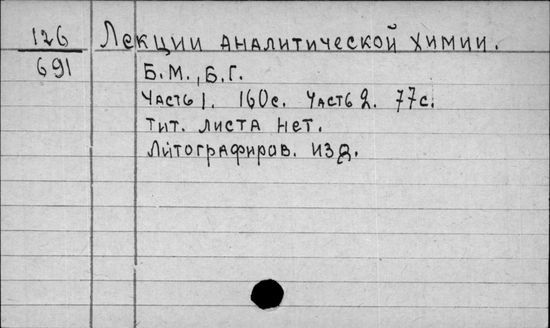 126 Лекции аналитической химии.
691 Б.М., Б.Г.
Часть 1. 160с. Часть 2. 77с.
Тит. листа нет.
Литографиров. изд.